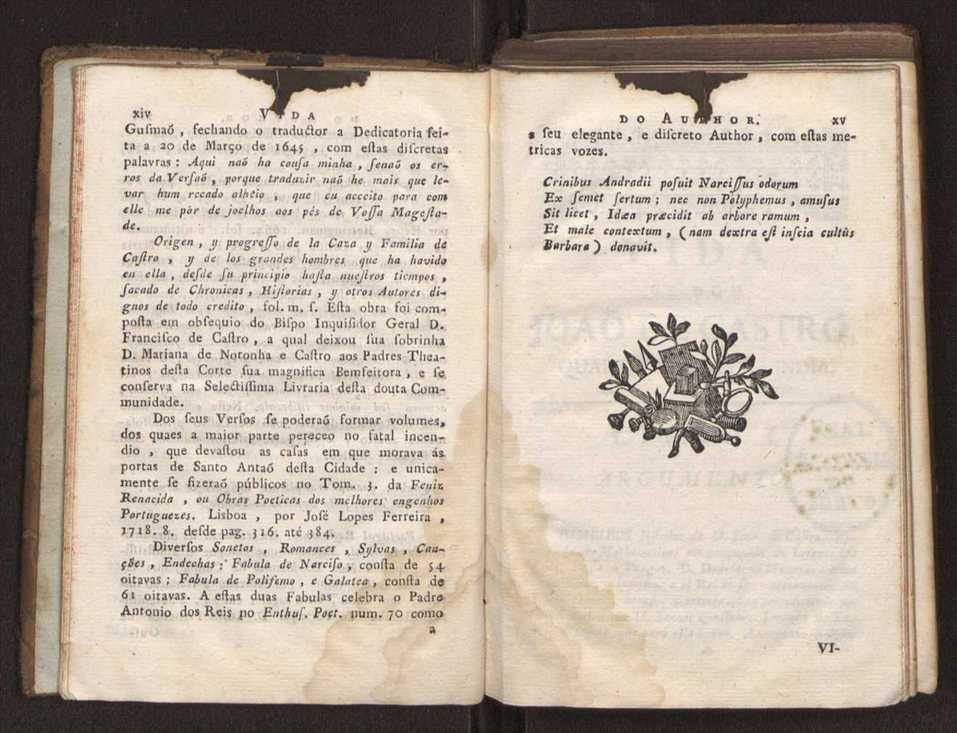 xiv VIDA
Guſmaõ , fechando o traductor a Dedicatoria fei-
ta a 20 de Março de 1645 , com eſtas diſcretas
palavras : Aqui naõ ha couſa minha , ſenaõ os er-
ros da Verſaõ , porque traduzir naõ he mais que le-
var hum recado alhêio , que eu acceito para com
elle me pôr de joelhos aos pés de Voſſa Mageſta-
de.
Origen , y progreſſo de la Caza y Familia de
Caſtro , y de los grandes hombres que ha havido
en ella , deſde ſu principio haſta nueſtros tiempos ,
ſacado de Chronicas , Hiſtorias , y otros Autores di-
gnos de todo credito , fol. m. ſ. Eſta obra foi com-
poſta em obſequio do Biſpo Inquiſidor Geral D.
Franciſco de Caſtro , a qual deixou ſua ſobrinha
D. Mariana de Noronha e Caſtro aos Padres Thea-
tinos deſta Corte ſua magnifica Bemfeitora , e ſe
conſerva na Selectiſſima Livraria deſta douta Com-
munidade.
Dos ſeus Verſos ſe poderaõ formar volumes,
dos quaes a maior parte pereceo no fatal incen-
dio , que devaſtou as caſas em que morava ás
portas de Santo Antaõ deſta Cidade : e unica-
mente ſe fizeraõ públicos no Tom. 3. da Feniz
Renacida , ou Obras Poeticas dos melhores engenhos
Portuguezes. Lisboa , por Joſé Lopes Ferreira ,
1718. 8. deſde pag. 316. até 384.
Diverſos Sonetos , Romances , Sylvas , Can-
ções , Endechas : Fabula de Narciſo , conſta de 54
oitavas ; Fabula de Polifemo , e Galatea , conſta de
61 oitavas. A eſtas duas Fabulas celebra o Padre
Antonio dos Reis no Enthuſ. Poet. num. 70 como
a
DO AUTHOR. xv
a ſeu elegante , e diſcreto Author , com eſtas me-
tricas vozes.
Crinibus Andradii poſuit Narciſſus odorum
Ex ſemet ſertum ; nec non Polyphemus , amuſus
Sit licet , Idæa præcidit ab arbore ramum ,
Et male contextum , ( nam dextra eſt inſcia cultûs
Barbara ) donavit.
VI-